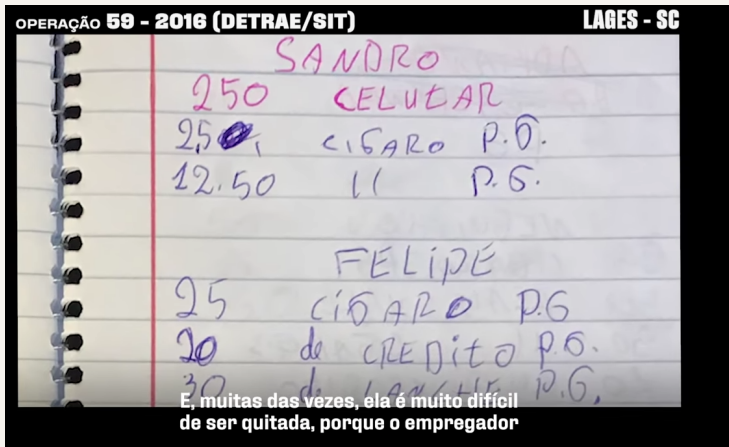 OPERAÇÃO 59 - 2016 (DETRAE/SIT)
LAGES - SC
SANDRO
250 CELULAR
25, CIGARO P.G.
12.50 11 P.G.
FELIPE
25 CIGARO P.G
20 de CREDITO P.G.
30 de LANCHE P.G.
E, muitas das vezes, ela é muito difícil
de ser quitada, porque o empregador